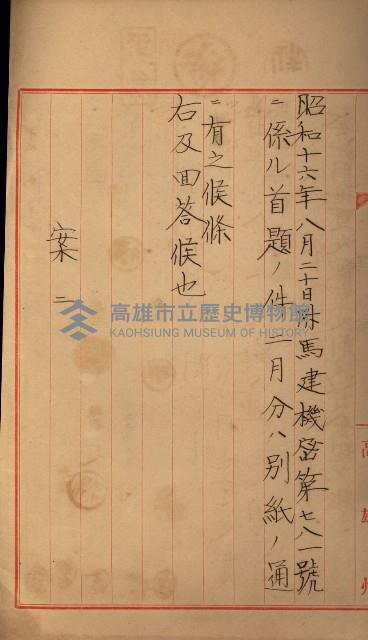 昭和十六年八月二十日附馬建機密第七八一號
ニ係ル首題ノ件二月分ハ別紙ノ通
ニ有之候條
右及回答候也
案二
高雄州
高雄市立歷史博物館
KAOHSIUNG MUSEUM OF HISTORY